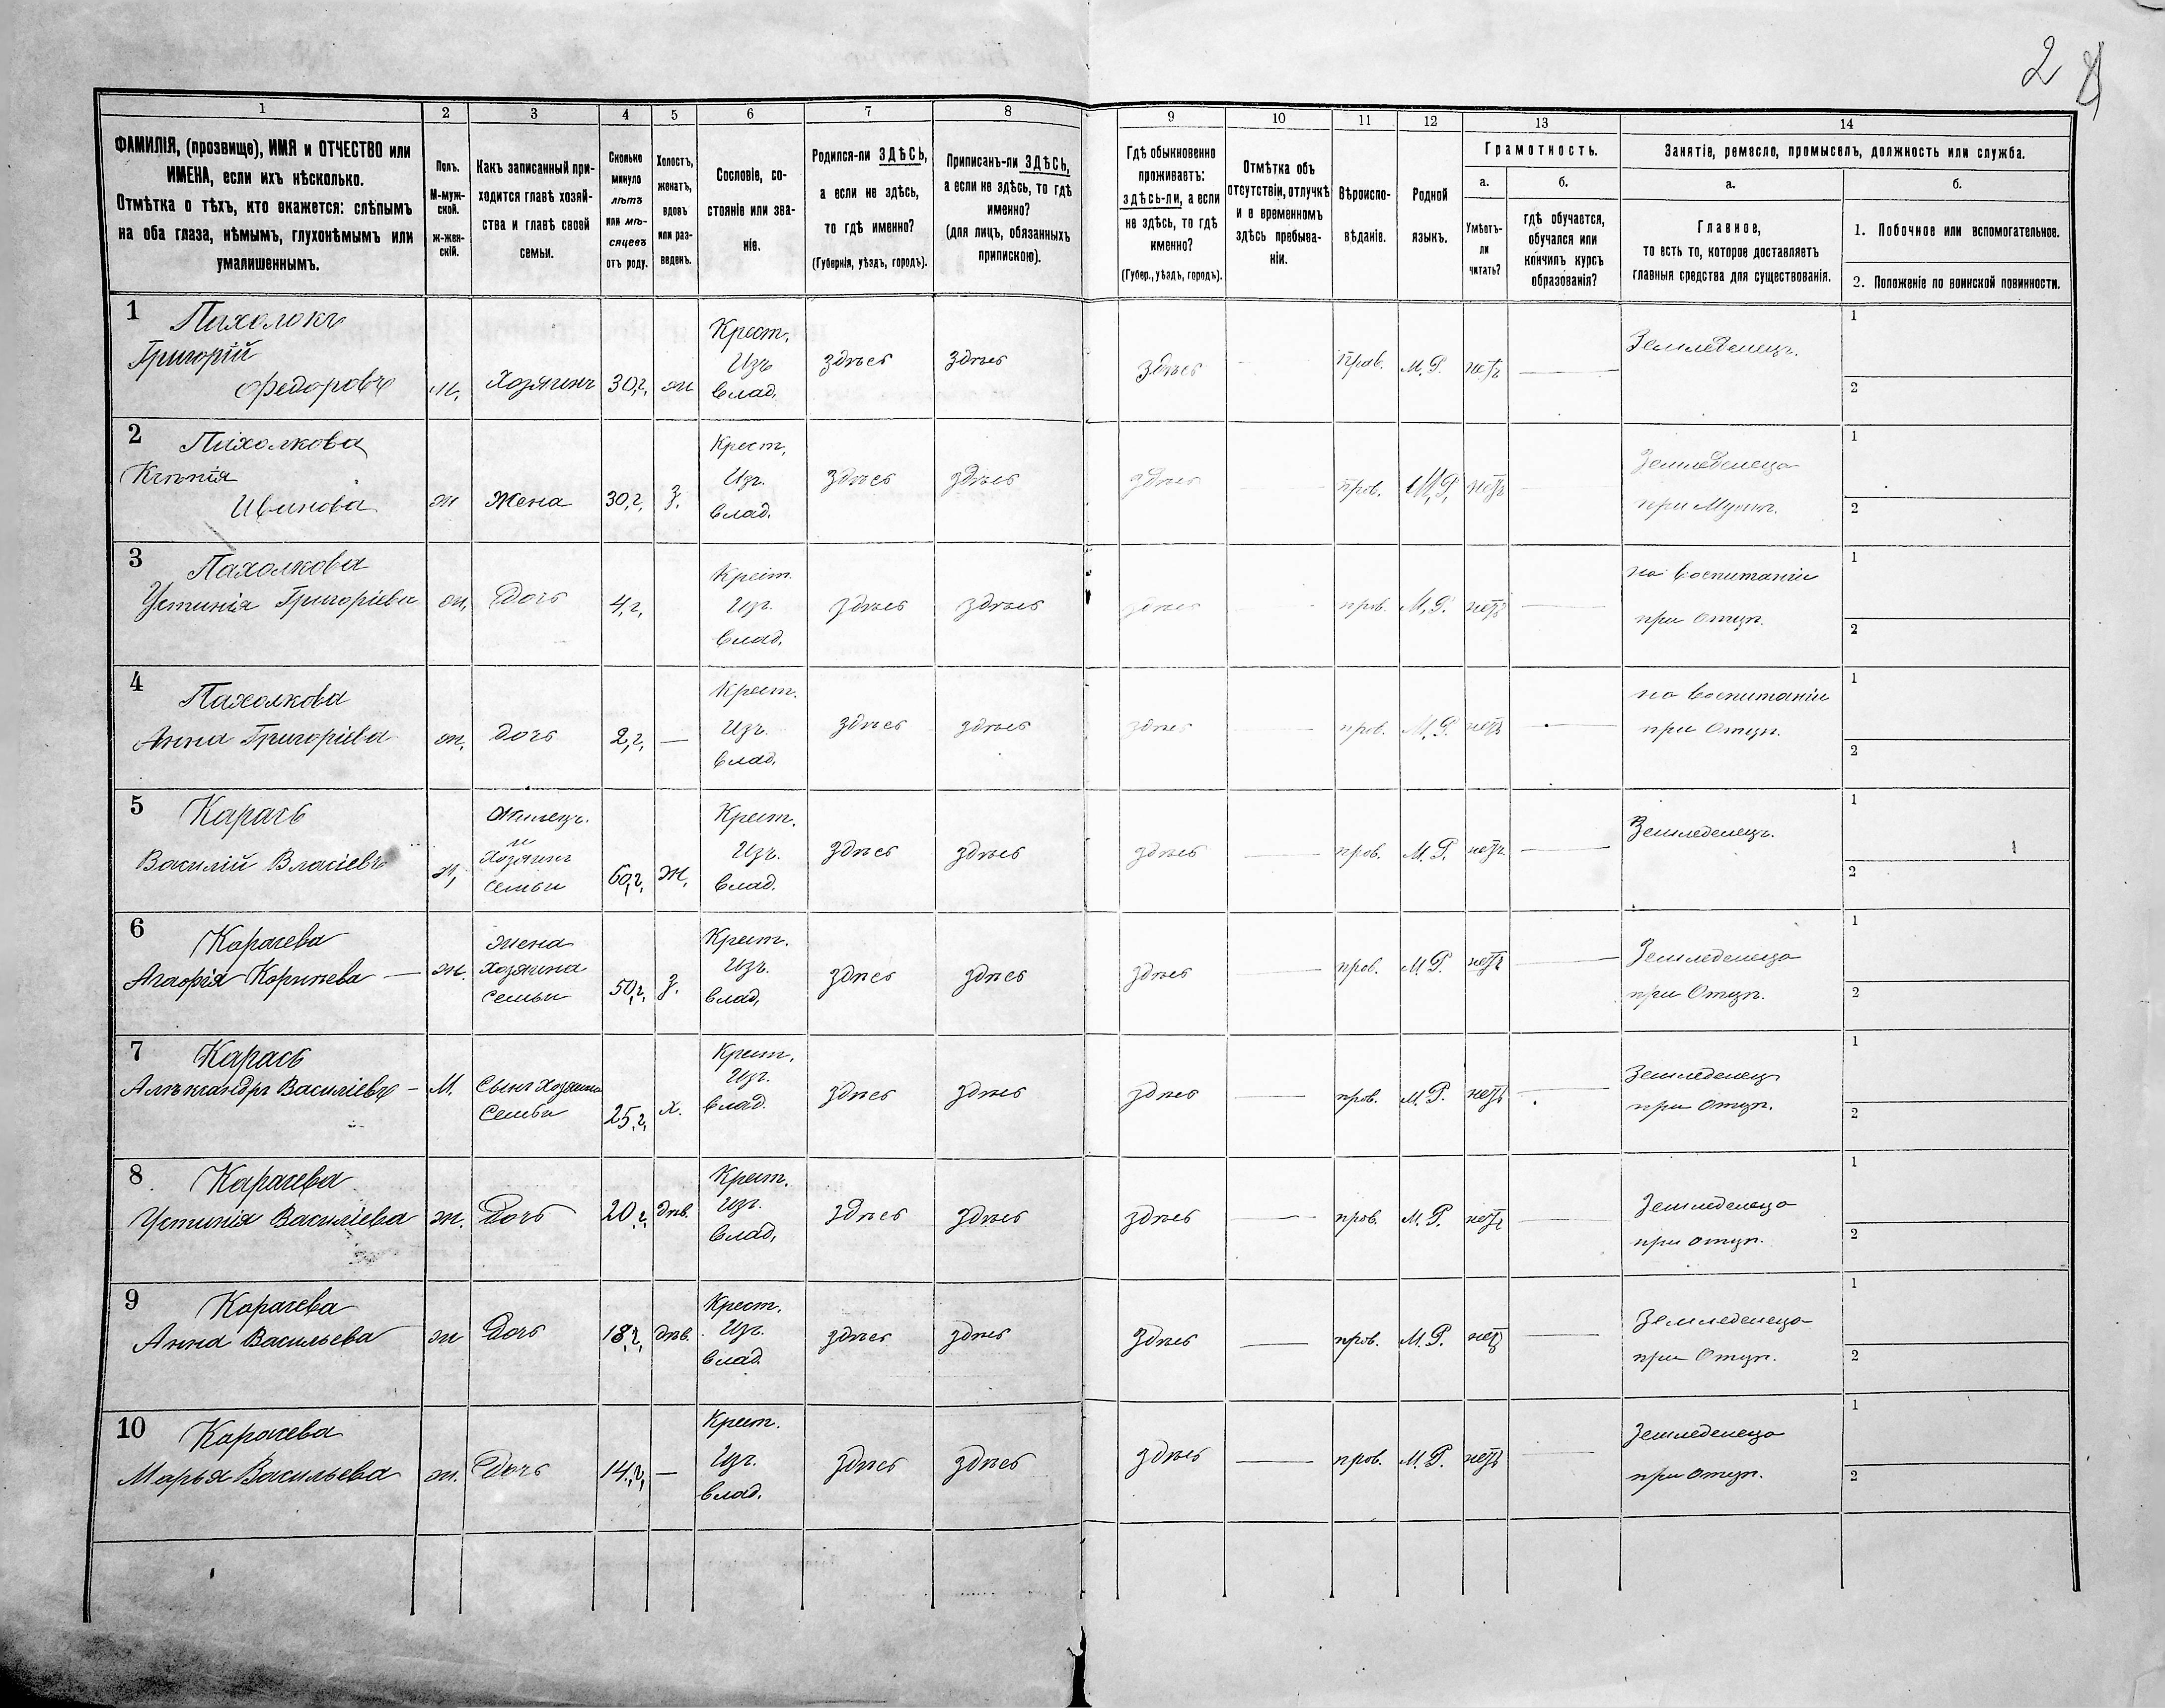 2
1
2
3
4
5
6
7
8
9
10
11
12
13
14
ФАМИЛІЯ, (прозвище), ИМЯ и ОТЧЕСТВО или
ИМЕНА, если ихъ нѣсколько.
Отмѣтка о тѣхъ, кто окажется: слѣпымъ
на оба глаза, нѣмымъ, глухонѣмымъ или
умалишеннымъ.
Полъ.
М-муж-
ской.
ж-жен-
скій.
Какъ записанный при-
ходится главѣ хозяй-
ства и главѣ своей
семьи.
Сколько
минуло
лѣтъ
или мѣ-
сяцевъ
отъ роду.
Холостъ,
женатъ,
вдовъ
или раз-
веденъ.
Сословіе, со-
стояніе или зва-
ніе.
Родился-ли ЗДѢСЬ,
а если не здѣсь,
то гдѣ именно?
(Губернія, уѣздъ, городъ).
Приписанъ-ли ЗДѢСЬ,
а если не здѣсь, то гдѣ
именно?
(для лицъ, обязанныхъ
припискою).
Гдѣ обыкновенно
проживаетъ:
здѣсь-ли, а если
не здѣсь, то гдѣ
именно?
(Губер., уѣздъ, городъ).
Отмѣтка объ
отсутствіи, отлучкѣ
и о временномъ
здѣсь пребыва-
ніи.
Вѣроиспо-
вѣданіе.
Родной
языкъ.
Грамотность.
а.
Умѣетъ-
ли
читать?
б.
гдѣ обучается,
обучался или
кончилъ курсъ
образованія?
Занятіе, ремесло, промыселъ, должность или служба.
а.
Главное,
то есть то, которое доставляетъ
главныя средства для существованія.
б.
1. Побочное или вспомогательное.
2. Положеніе по воинской повинности.
1 Пахолокъ
Григорій
Федоровъ м. Хозяинъ 30,г, ж
Крест,
Изъ
влад.
здѣсь здѣсь здѣсь Прав. М.Р. нѣтъ
Земледелецъ.
1
2
2 Пахолкова
Ивинова ж Жена 30,г, З.
Крест,
Изъ.
влад.
здѣсь здѣсь здѣсь прав. М.Р. нетъ
Земледелеца
при Мужѣ.
1
2
3 Пахолкова
Устинія Григоріева ж, Дочь 4,г,
Крест.
Изъ.
влад.
здѣсь здѣсь здѣсь прав. М.Р. нетъ
на воспитаніи
при Отцѣ.
1
2
4 Пахолкова
Анна Григоріева ж, дочь 2,г, —
Крест.
Изъ.
влад,
здѣсь здѣсь здѣсь прав. М.Р. нетъ
на воспитаніи
при Отцѣ.
1
2
5 Карась
Василій Власіевъ м,
Жилецъ.
и
Хозяинъ
семьи
60,г, Ж,
Крест.
Изъ.
влад.
здѣсь здѣсь здѣсь прав. М.Р. нетъ
Земледелецъ.
1
2
6 Карасева
Агафія — ж.
жена
хозяина
семьи
50,г, З.
Крест.
изъ.
влад,
здѣсь здѣсь здѣсь прав. М.Р. нетъ
Земледелеца
при Отцѣ.
1
2
7 Карась
Алѣксандръ Василіевъ — М.
Сынъ хозяина
Семьи
25,г, х.
Крест,
Изъ.
влад.
здѣсь здѣсь здѣсь прав. М.Р. нетъ
Земледелец
при Отцѣ.
1
2
8 Карасева
Устинія Василіева ж. Дочь 20,г, дѣв.
Крест.
Изъ.
влад,
здѣсь здѣсь здѣсь прав. М.Р. нетъ
Земледелеца
при отцѣ.
1
2
9 Карасева
Анна Васильева ж Дочь 18,г, дѣв.
Крест.
Изъ.
влад.
здѣсь здѣсь здѣсь прав. М.Р. нетъ
Земледелеца
при Отцѣ.
1
2
10 Карасева
Марья Васильева ж. Дочь 14,г, —
Крест.
Изъ.
влад.
здѣсь здѣсь здѣсь прав. М.Р. нетъ
Земледелеца
при отцѣ.
1
2